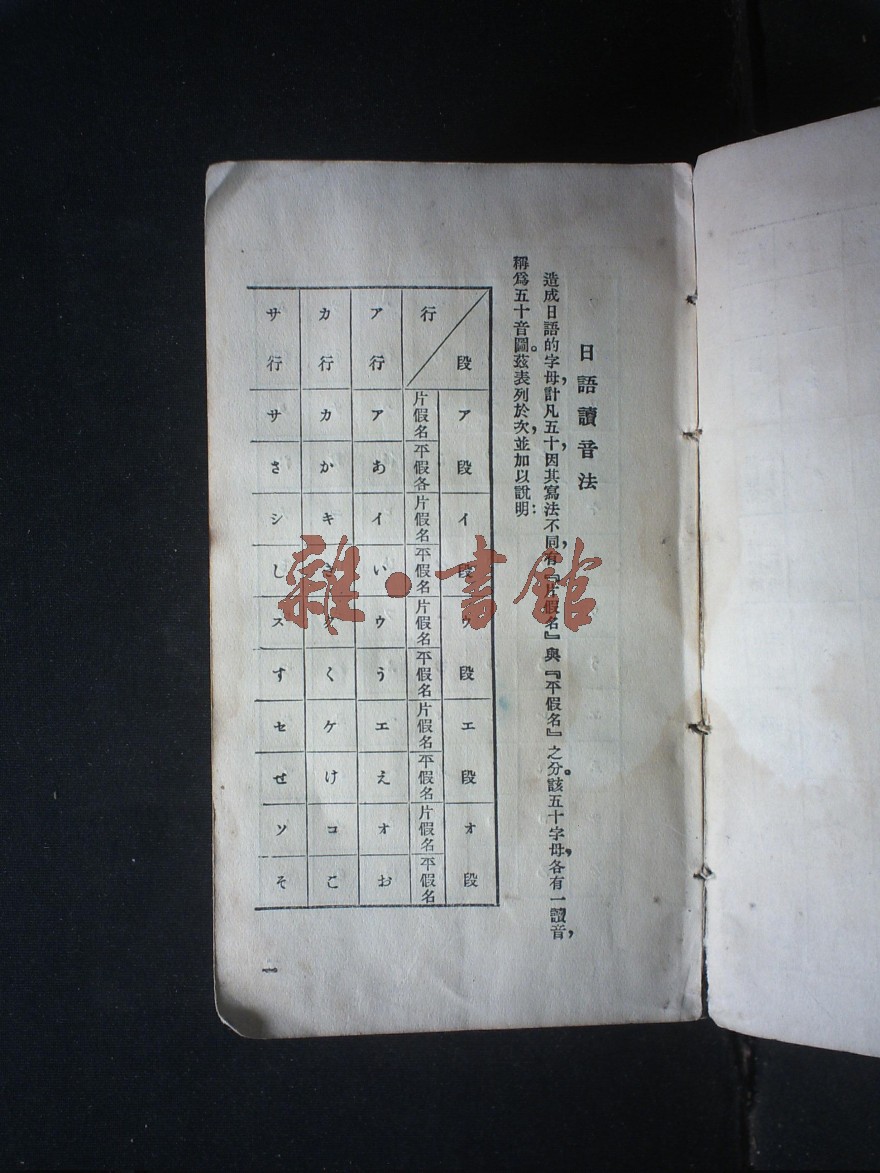 日語讀音法
造成日語的字母，計凡五十，因其寫法不同，有『片假名』與『平假名』之分。該五十字母，各有一讀音，
稱爲五十音圖。茲表列於次，並加以說明：
段 ア段 イ段 ウ段 エ段 オ段
行 片假名 平假各 片假名 平假名 片假名 平假名 片假名 平假名 片假名 平假名
ア行 ア あ イ い ウ う エ え オ お
カ行 カ か キ き ク く ケ け コ こ
サ行 サ さ シ し ス す セ せ ソ そ
一
雜·書館